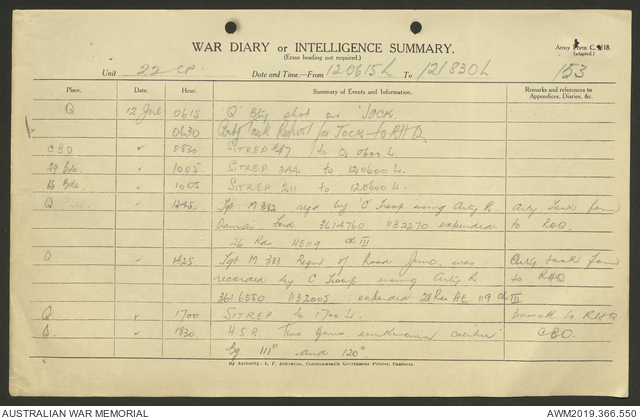 WAR DIARY or INTELLIGENCE SUMMARY.
(Erase heading not required.)
Army Form C. 118.
(adapted.)
Unit 22 CP. Date and Time.—From 120615L To 121830L 153
Place. Date. Hour. Summary of Events and Information. Remarks and references to Appendices, Diaries, &c.
Q 12 0615 'Q' Bty shot on 'JOCK.
0630 Arty Task Report for JOCK to RHQ
CBO ✓ 0830 SITREP 287 to 0600 L.
29 Bde. ✓ 1005 SITREP 244 to 120600 L.
Bde ✓ 1005 SITREP 211 to 120600 L.
Q ✓ 1245 Tgt M 382 by 'C' Troop using Arty R. Arty Task form
3614760 1132270 expended to RHQ
26 Rds HE 119
Q ✓ 1425 Tgt M 383 Regn of Road Junc. was Arty task form
recorded by C Troop using Arty R to RHQ
3616550 1132005. expended 28 Rds HE 119
Q ✓ 1700 SITREP to 1700 L. to RHQ
✓ 1830 H.S.R. Two Guns unknown calibre CBO.
bg 111° and 120°.
By Authority: L. F. Johnston, Commonwealth Government Printer, Canberra.
AUSTRALIAN WAR MEMORIAL AWM2019.366.550